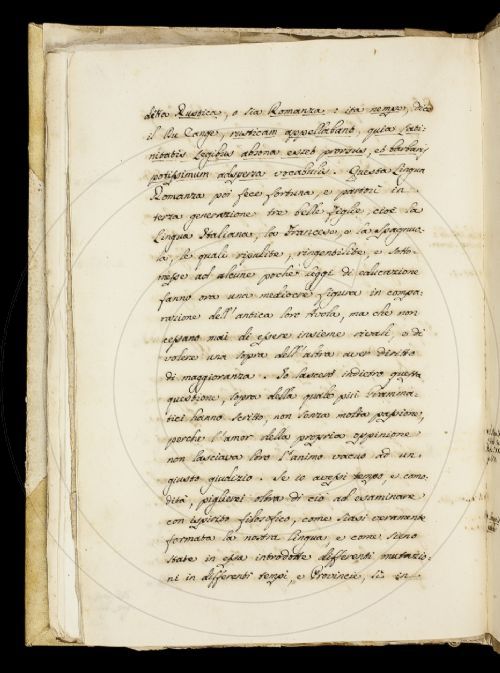 detta Rustica, o sia Romanza: ita nempe, dice
il Du Cange, rusticam appellabant, quia Lati-
nitatis legibus absona esset prorsus, et barbaris
potissimum adspersa vocabulis. Questa Lingua
Romanza poi fece fortuna, e partorì in
terza generazione tre belle figlie, cioè la
Lingua Italiana, la Francese, e la Spagnuo-
la, le quali ripulite, ringentilite, e sotto-
messe ad alcune poche leggi di educazione
fanno ora una mediocre figura in compa-
razione dell'antica loro Avola, ma che non
cessano mai di essere insieme rivali, e di
volere una sopra dell'altra aver diritto
di maggioranza. Io lascerò indietro questa
questione, sopra della quale più Gramma-
tici hanno scritto, non senza molta passione,
perchè l'amor della propria oppinione
non lasciava loro l'animo vacuo ad un
giusto giudizio. Se io avessi tempo, e como-
dità, piglierei oltra di ciò ad esaminare
con ispirito filosofico, come siasi veramente
formata la nostra lingua, e come sieno
state in essa introdotte differenti mutazio-
ni in differenti tempi, e Provincie, sì in